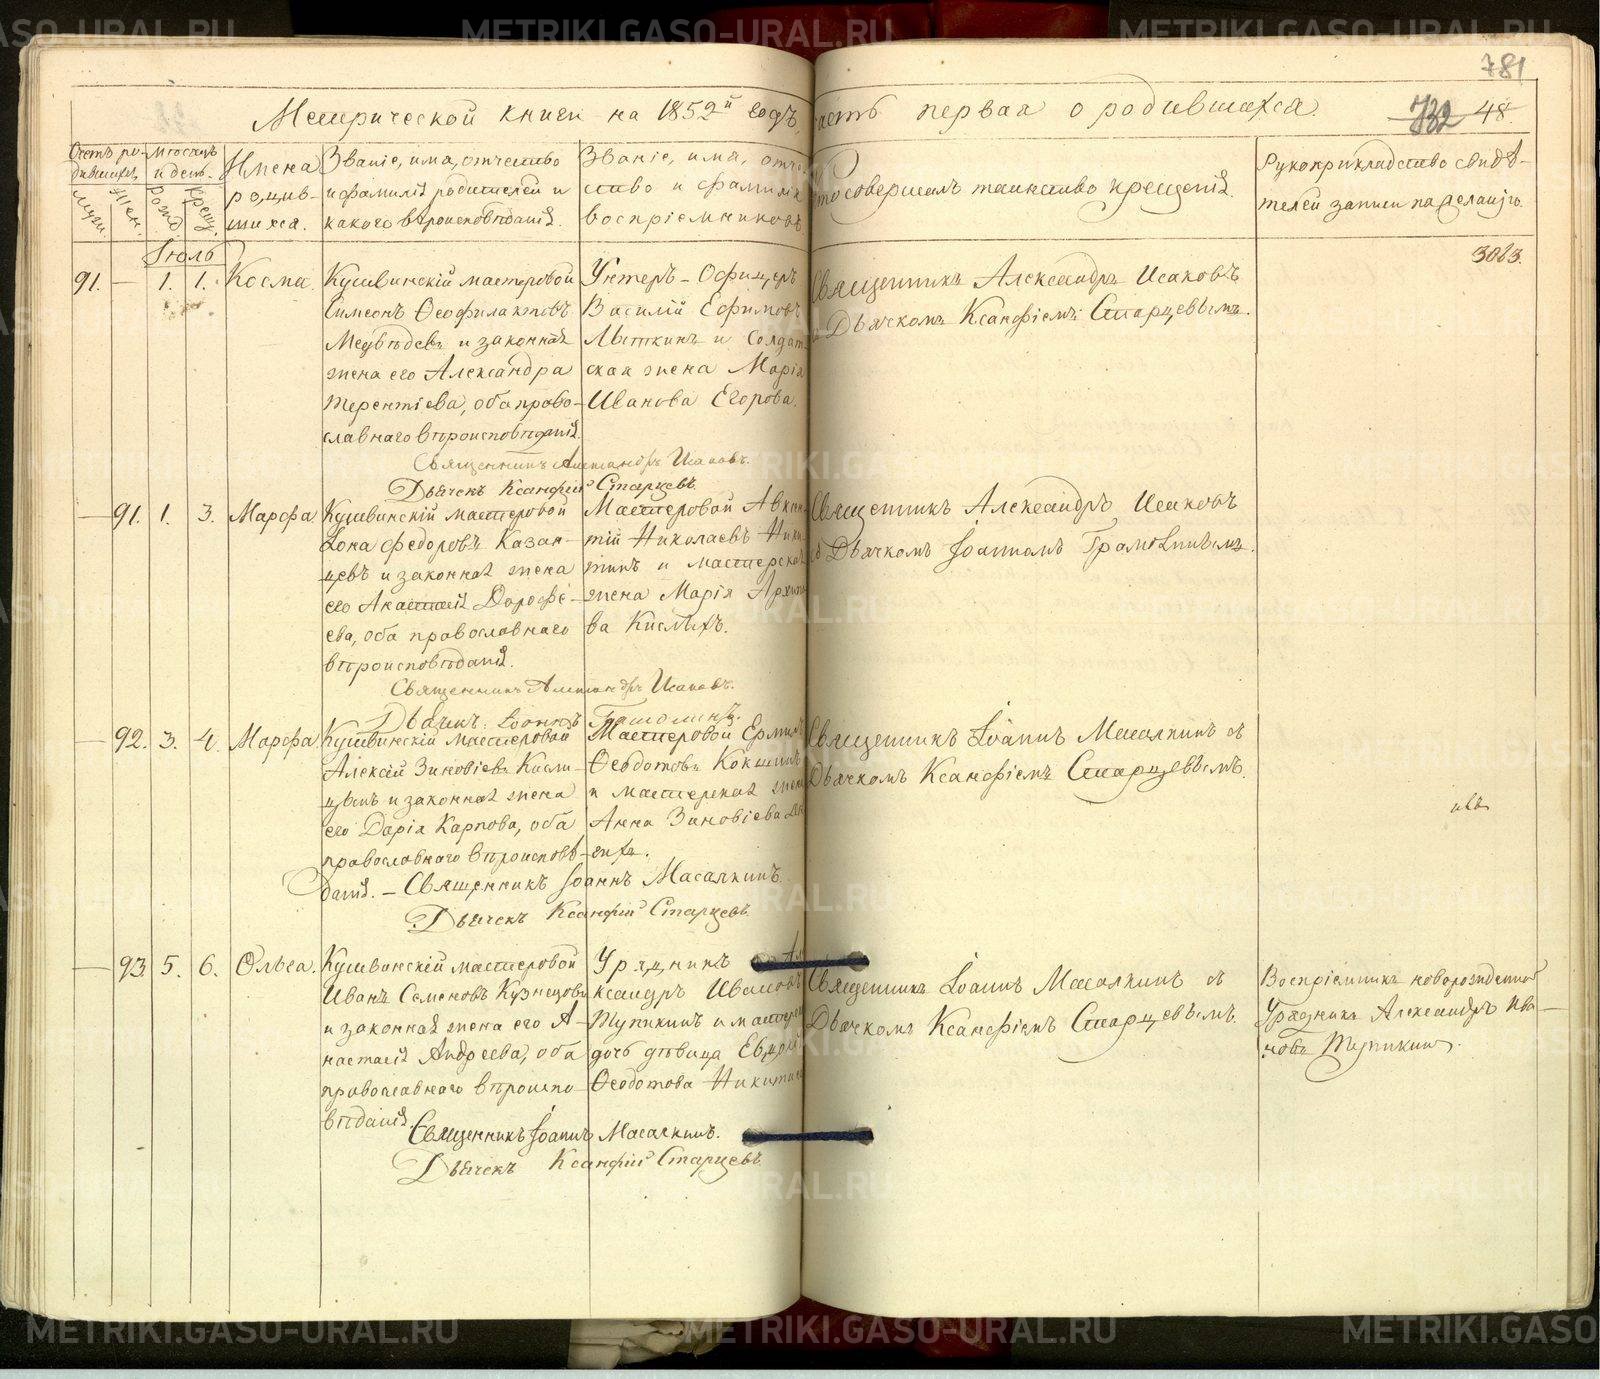 781
Метрической книги на 1852й годъ, часть первая о родившихся.
732 48.
Счетъ ро-
дившихся
Муж.
Жен.
Мѣсяцъ
и день.
Рожд.
Крещ.
Имена
родив-
шихся.
Званіе, имя, отчество
и фамилія родителей и
какого вѣроисповѣданія.
Званіе, имя, отче-
ство и фамилія
воспріемниковъ
Кто совершалъ таинство крещенія.
Рукоприкладство свидѣ-
телей записи по желанію.
Іюль
91. — 1. 1. Косма.
Кушвинскій мастеровой
Симеонъ Ѳеофилактовъ
Медвѣдевъ и законная
жена его Александра
Терентіева, оба право-
славнаго вѣроисповѣданія.
Унтеръ-Офицеръ
Василій Ефимовъ
Лыткинъ и Солдат-
ская жена Марія
Иванова Егорова.
Священникъ Александръ Исаковъ
съ Дьячкомъ Ксанфіемъ Старцевымъ.
Священникъ Александръ Исаковъ.
Дьячекъ Ксанфій Старцевъ.
— 91. 1. 3. Марфа.
Кушвинскій мастеровой
Іона Федоровъ Казан-
цевъ и законная жена
его Анастасія Дорофе-
ева, оба православнаго
вѣроисповѣданія.
Мастеровой Авксен-
тій Николаевъ Ники-
тинъ и мастерская
жена Марія Архипо-
ва
Священникъ Александръ Исаковъ
съ Дьячкомъ Іоанномъ
Священникъ Александръ Исаковъ.
Дьячекъ Іоаннъ
— 92. 3. 4. Марфа.
Кушвинскій мастеровой
Алексій Зиновіевъ Кисли-
цынъ и законная жена
его Дарія Карпова, оба
православнаго вѣроисповѣ-
данія. — Священникъ Іоаннъ Масалкинъ.
Дьячекъ Ксанфій Старцевъ.
Мастеровой
Ѳеодотовъ Кокшинъ
и мастерская жена
Анна Зиновіева
Священникъ Іоаннъ Масалкинъ съ
Дьячкомъ Ксанфіемъ Старцевымъ.
— 93. 5. 6. Ольга.
Кушвинскій мастеровой
Иванъ Семеновъ Кузнецовъ
и законная жена его А-
настасія Андреева, оба
православнаго вѣроиспо-
вѣданія.
Урядникъ Але-
ксандръ Ивановъ
Тупикинъ и мастерск.
дочь дѣвица
Ѳеодотова Никитина
Священникъ Іоаннъ Масалкинъ съ
Дьячкомъ Ксанфіемъ Старцевымъ.
Воспріемникъ новорожденной
Урядникъ Александръ Ива-
новъ Тупикинъ.
Священникъ Іоаннъ Масалкинъ.
Дьячекъ Ксанфій Старцевъ
METRIKI.GASO-URAL.RU